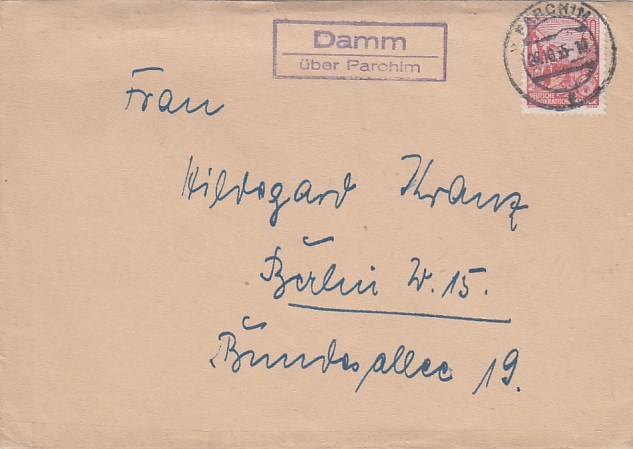 Damm
über Parchim
PARCHIM
DEUTSCHE
Frau
Hildegard Kranz
Berlin W. 15.
Bundesallee 19.